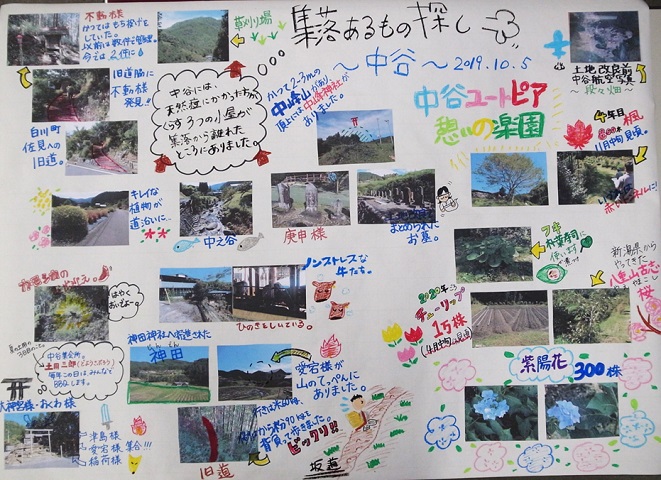 集落あるもの探し
～中谷～ 2019.10.5
中谷ユートピア
憩いの楽園
不動様
かつてはもち投げを
していた。
草刈り場
旧道脇に
不動様
発見!!
白川町
佐見への
旧道。
中谷には、
天然痘にかかった方が
くらす3つの小屋が
集落から離れた
ところにありました。
かつて2~3mの
中峰山があり、
頂上には中峰神社が
ありました。
土地改良前
中谷航空写真
～段々畑～
楓
11月中旬見頃。
キレイな
植物が
道沿いに…
中之谷
庚申様
まとめられた
お墓。
フキ
朴葉寿司に
使います
新潟県から
やってきた
八重山古志
桜
ノンストレスな
牛たち。
ひのきをもしいている。
はやく
おいでよー。
2020年は
チューリップ
1万株
神田神社へ厳選された
神田
愛宕様が
山のてっぺんに
あります。
中谷集会所。
土用三郎(どようさぶろう)
毎年この日はみんなで
BBQします。
大神宮様・おくわ様
津島様
愛宕様
稲荷様
集合!!!
背負って歩きました。
ビックリ!!
旧道
坂道
紫陽花 300株